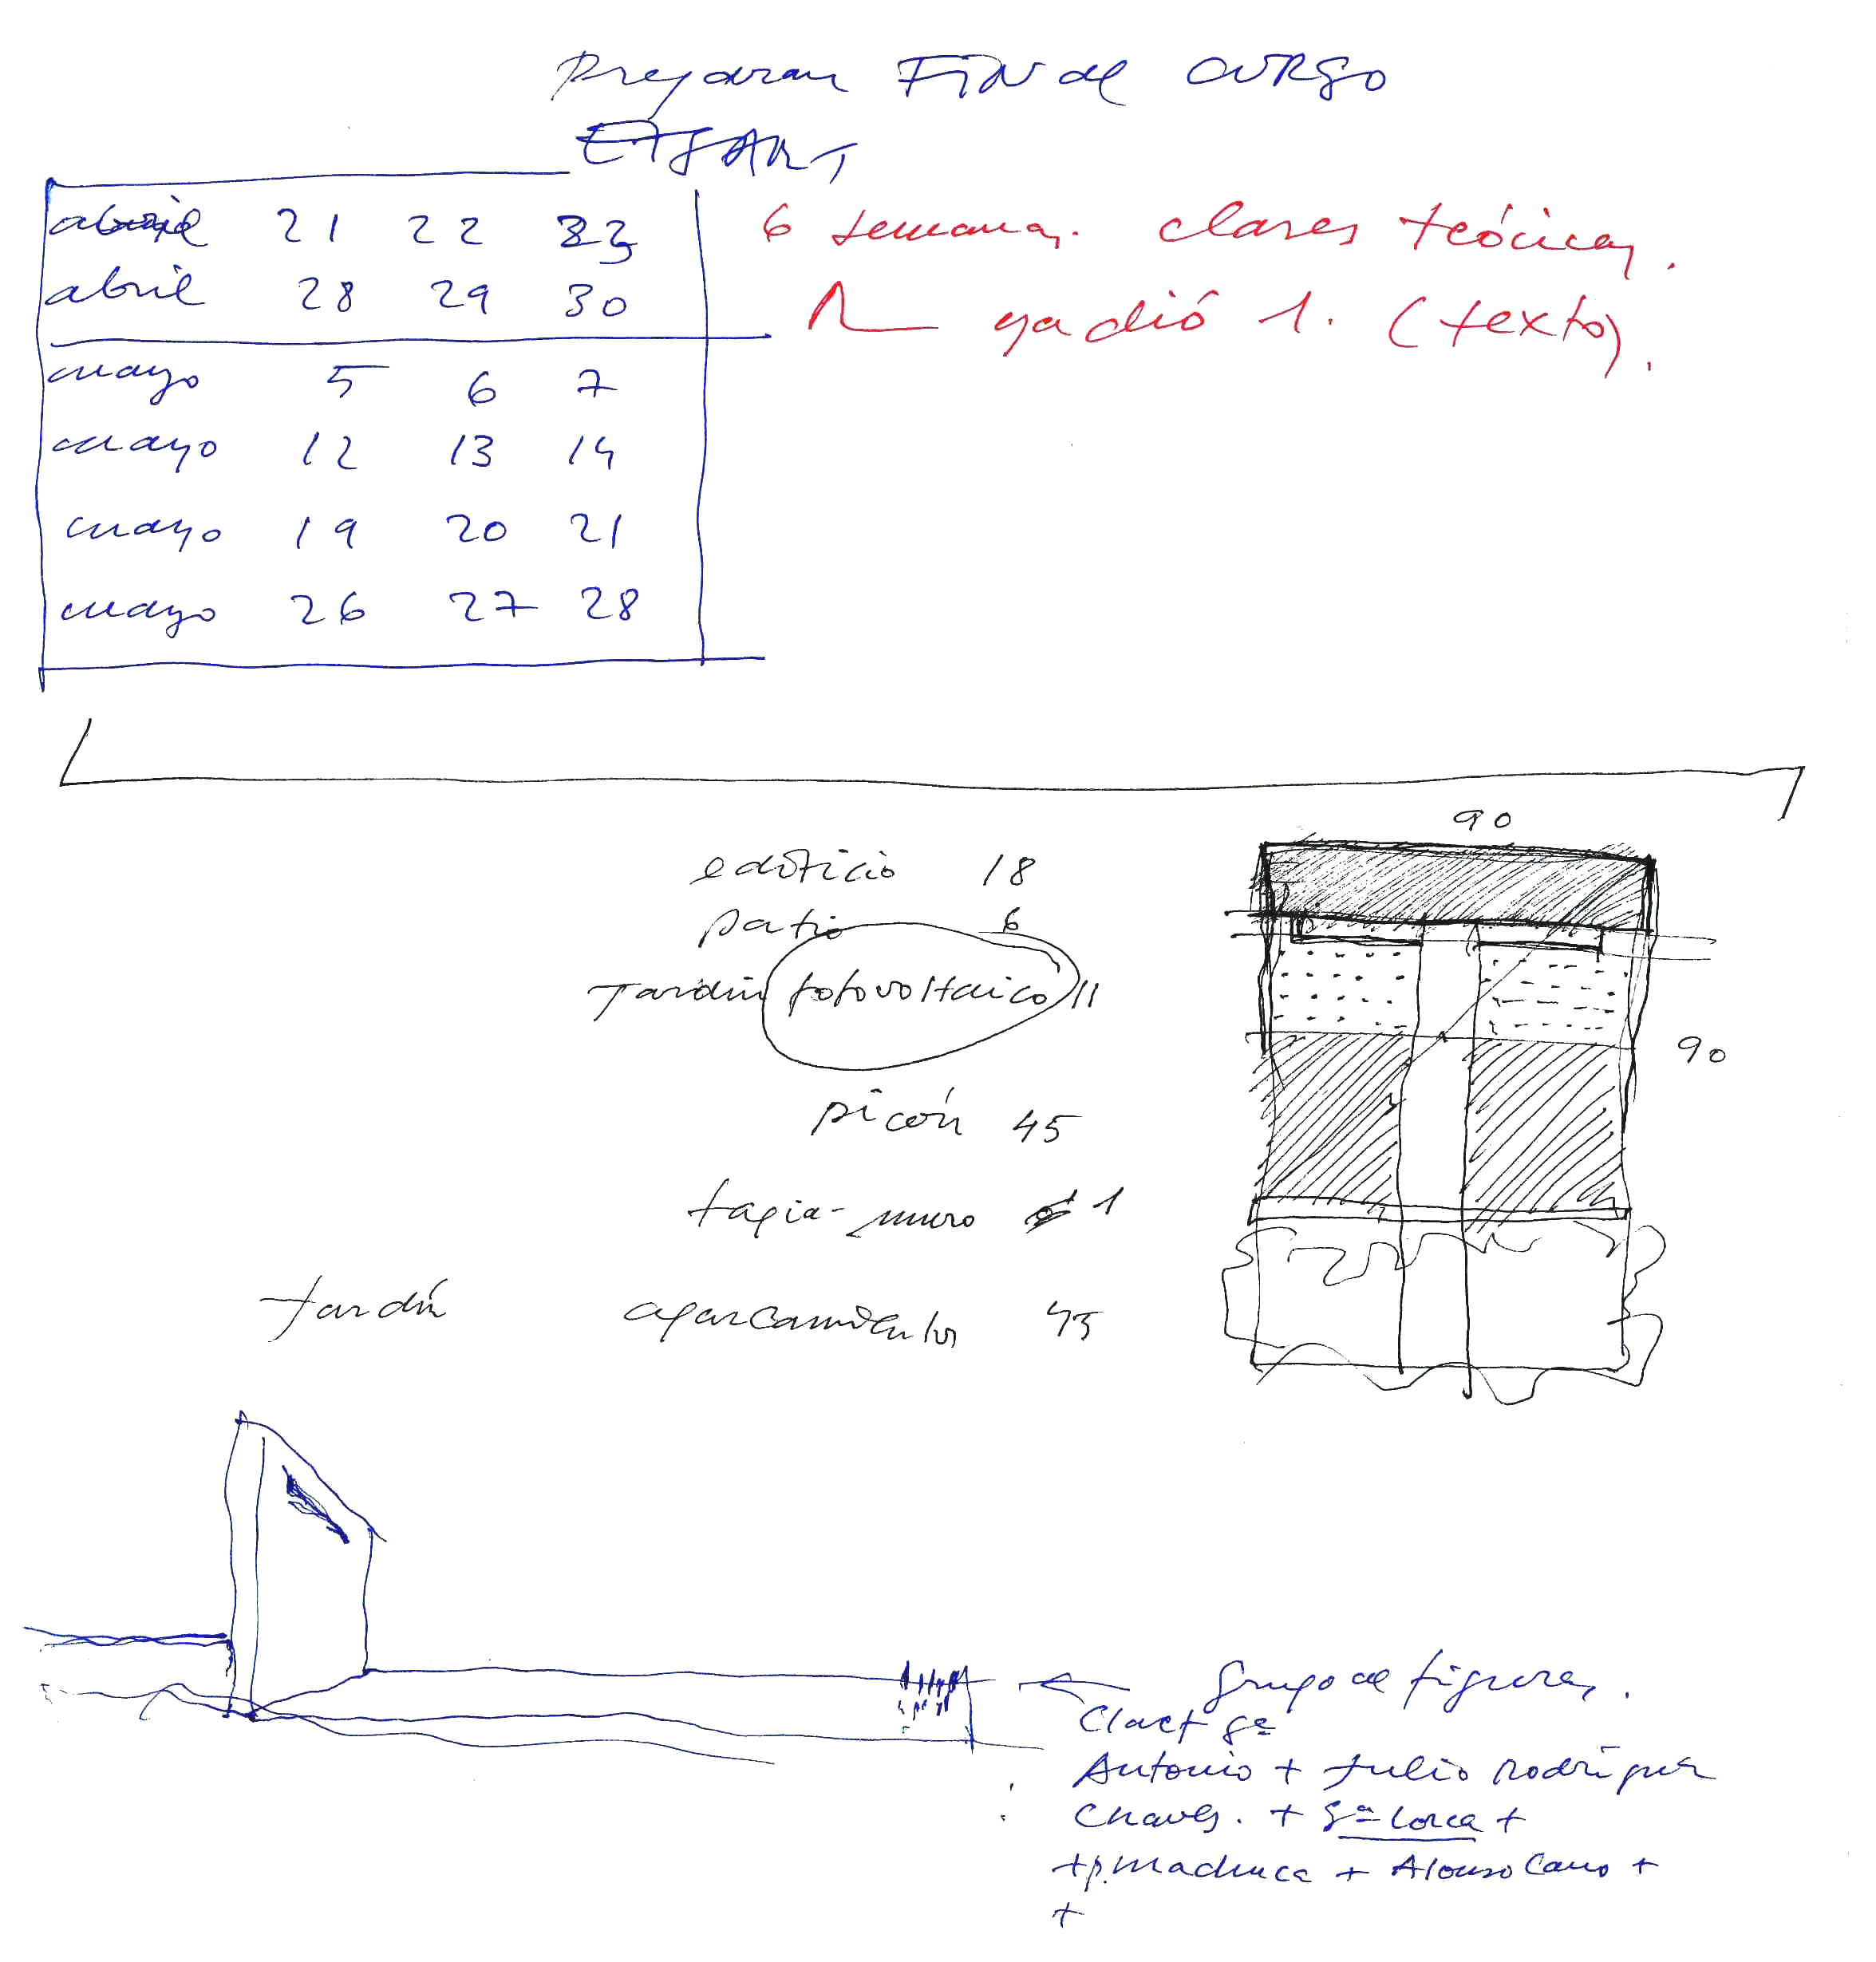 Preparar FIN de CURSO
ETSART
abril 21 22 23
abril 28 29 30
mayo 5 6 7
mayo 12 13 14
mayo 19 20 21
mayo 26 27 28
6 semanas. clases teóricas.
ya dió 1. (texto).
90
edificio 18
patio 6
Jardín fotovoltaico 11
90
picón 45
tapia-muro 1
Jardín aparcamientos 45
Grupo de figuras.
Claet Gª
Antonio + Julio Rodríguez
Chaves. + Gª Lorca +
+ p. Machuca + Alonso Cano +
+